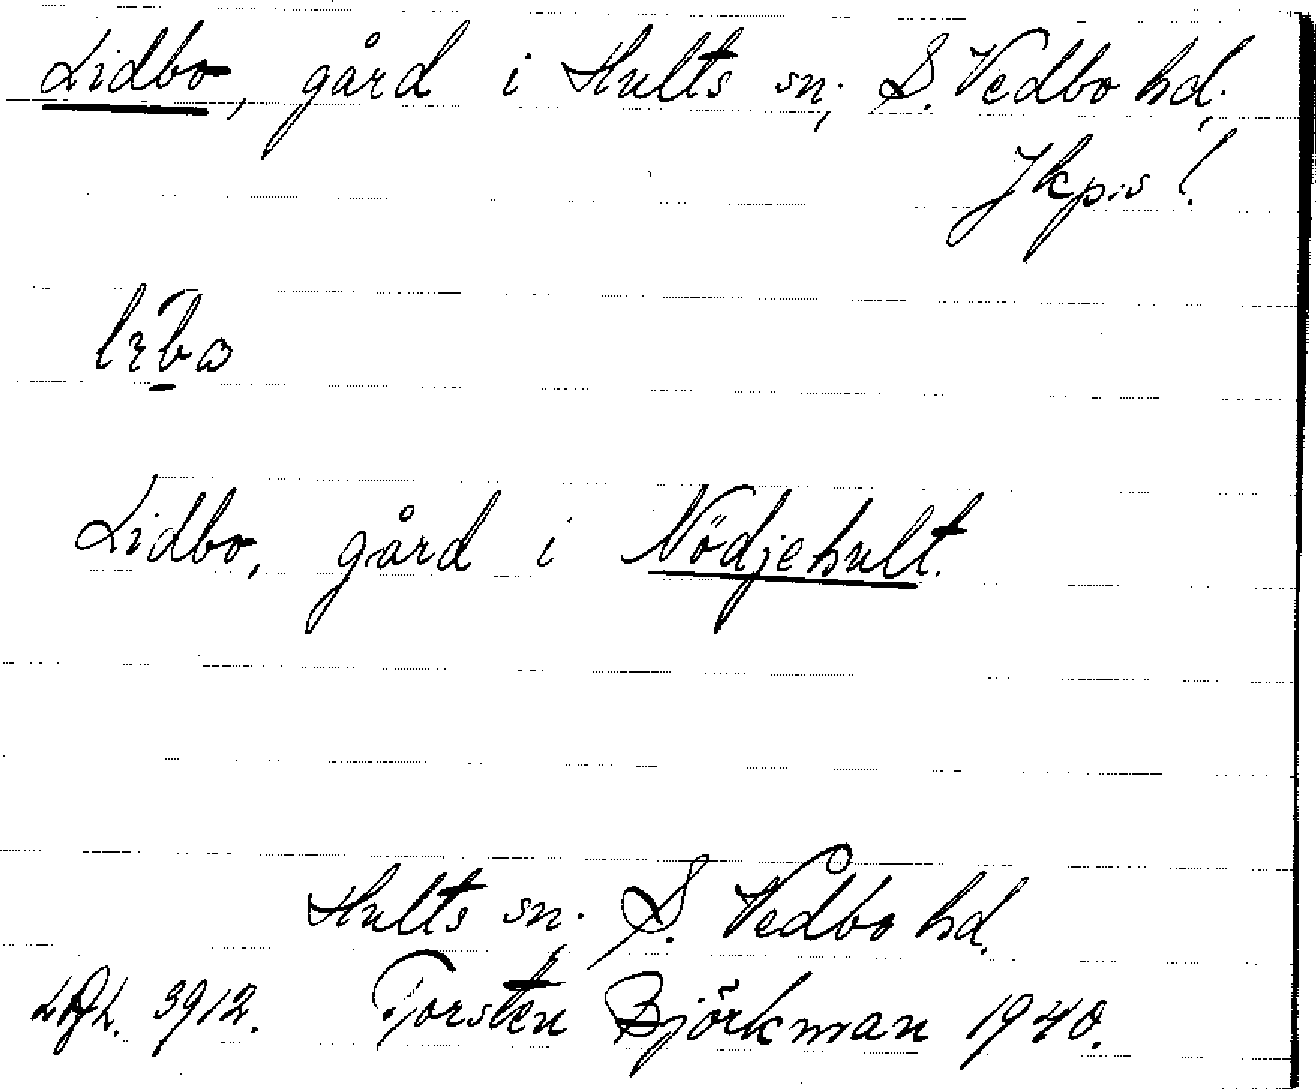 Lidbo, gård i Hults sn; S. Vedbo hd.,
Jkp:s l.
Lidbo, gård i Nödjehult.
Hults sn; S. Vedbo hd.
3912. Torsten Björkman 1940.